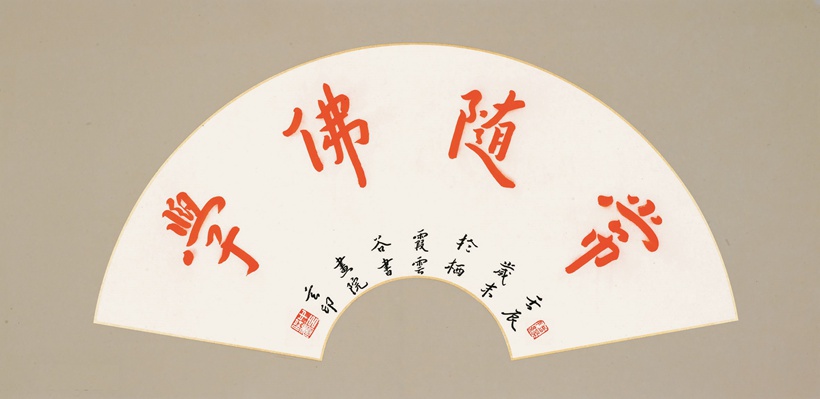 常随佛學
壬辰
歲末
於栖
霞雲
谷書
畫院
玄印